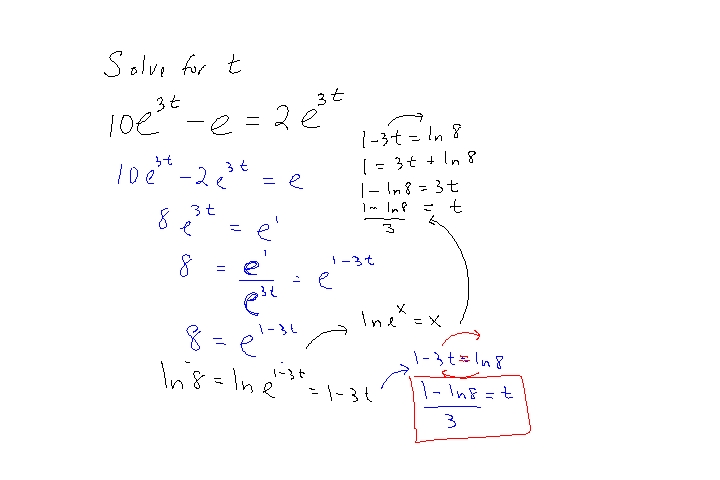 Solve for t
10e^{3t} - e = 2e^{3t}
10e^{3t} - 2e^{3t} = e
8e^{3t} = e^1
8 = e^1/e^{3t} = e^{1-3t}
8 = e^{1-3t}
ln 8 = ln e^{1-3t} = 1-3t
ln e^x = x
1-3t = ln 8
1 = 3t + ln 8
1 - ln 8 = 3t
(1 - ln 8)/3 = t
1-3t = ln 8
(1 - ln 8)/3 = t